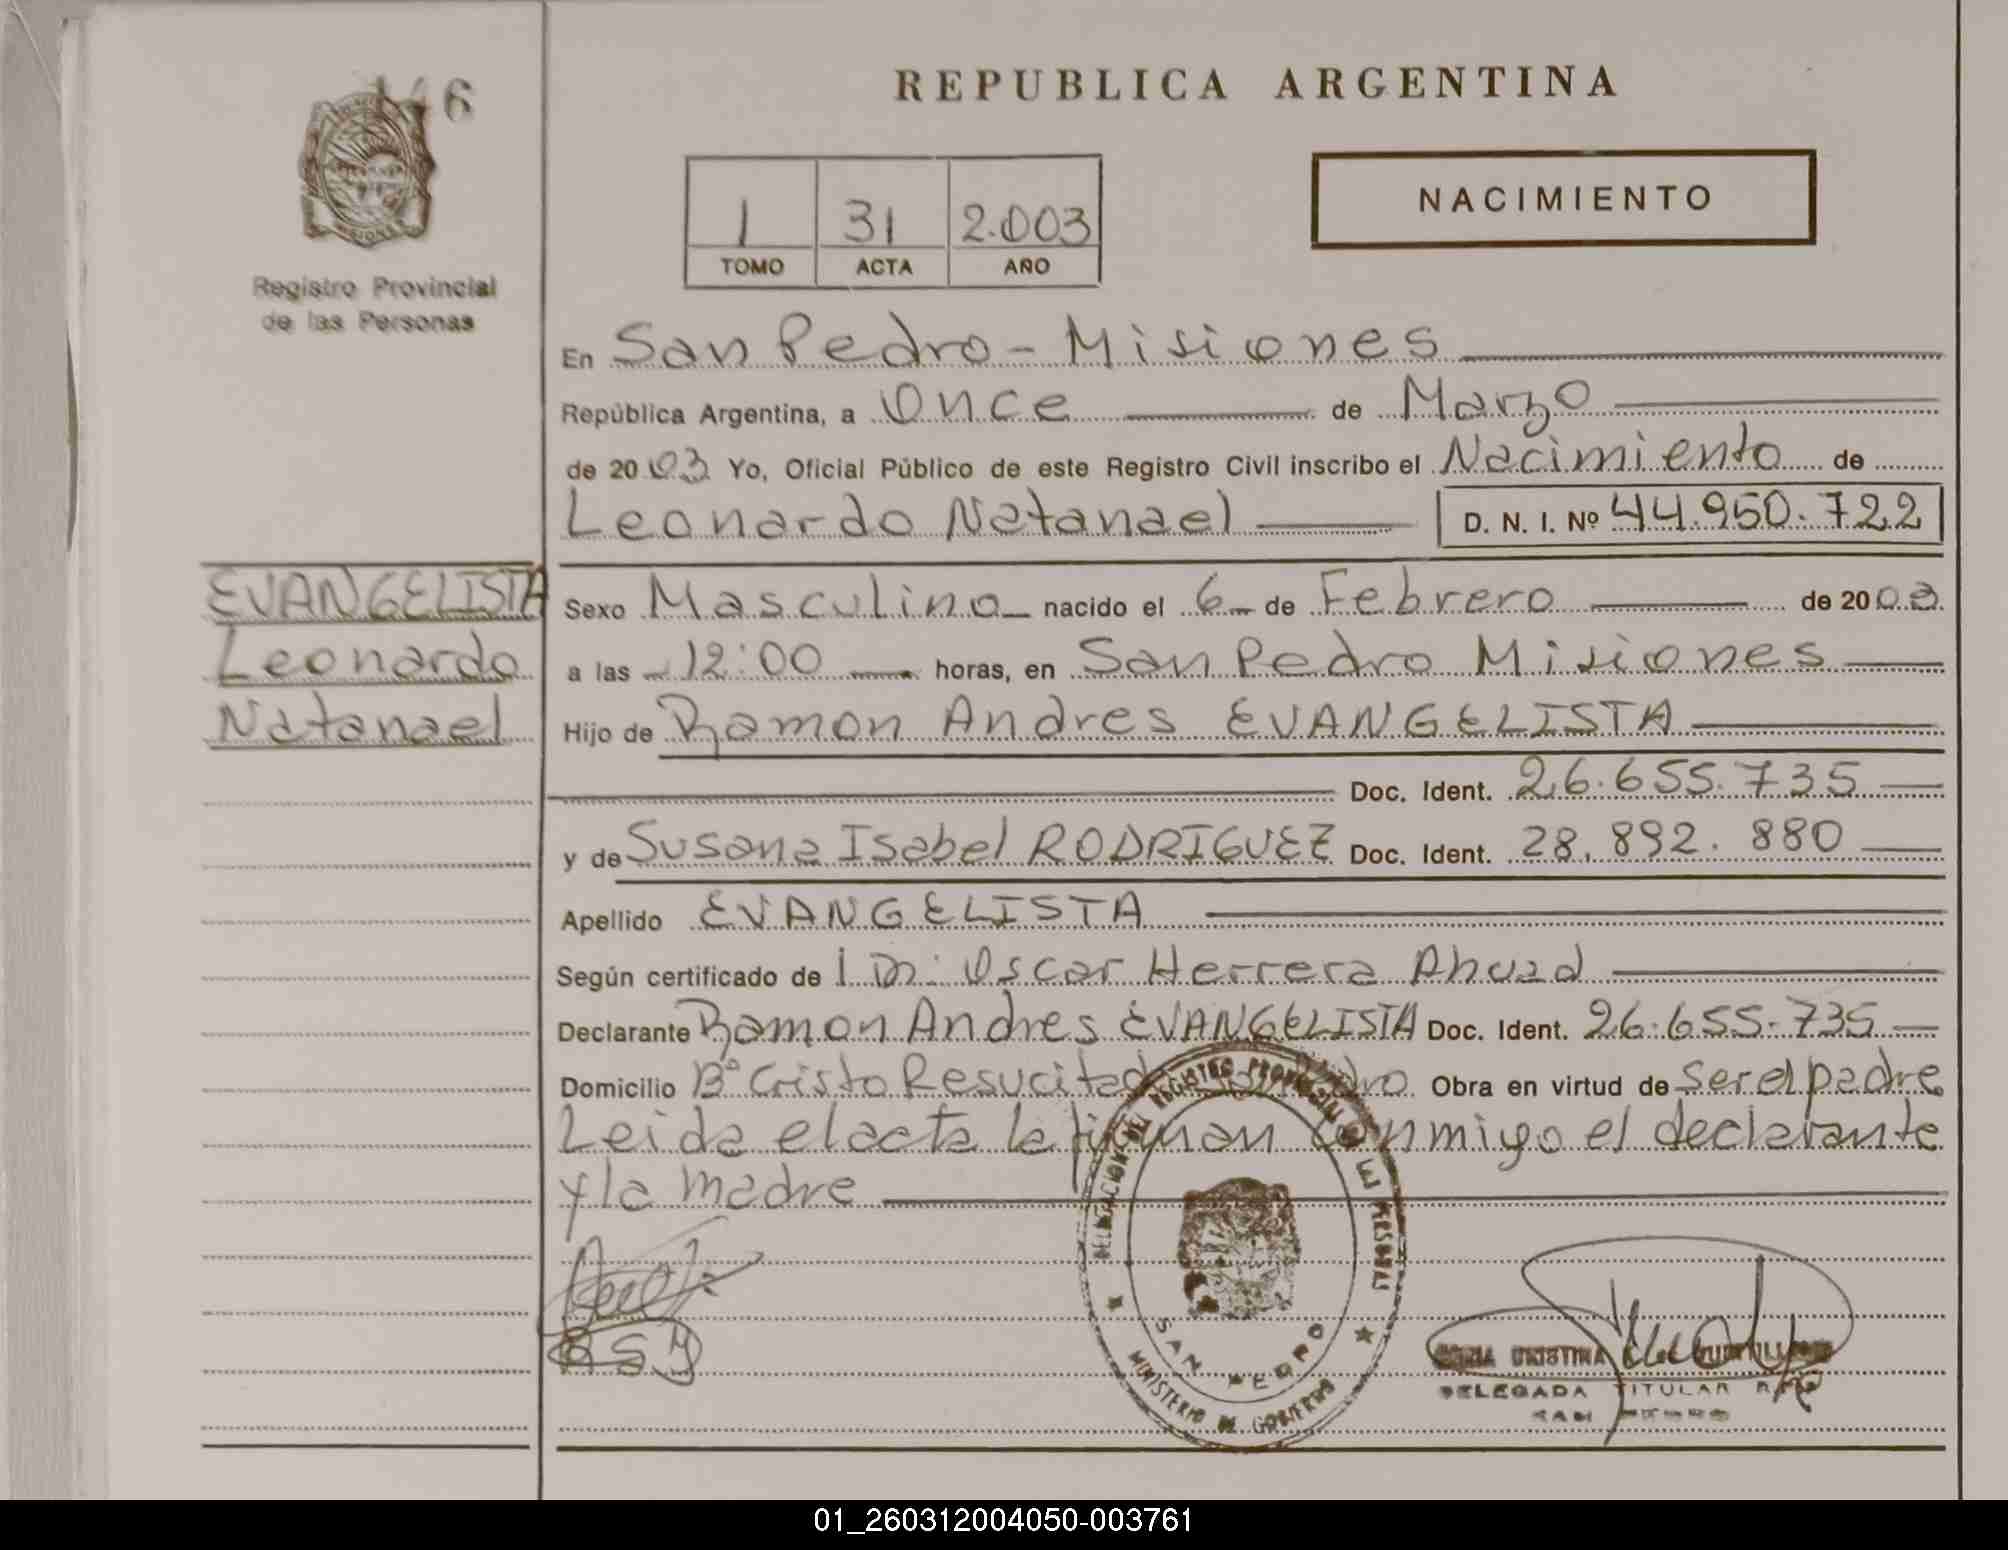 6
REPUBLICA ARGENTINA
1 31 2.003
TOMO ACTA AÑO
NACIMIENTO
Registro Provincial
de las Personas
En San Pedro - Misiones
República Argentina, a Once de Marzo
de 2003 Yo, Oficial Público de este Registro Civil inscribo el Nacimiento de
Leonardo Natanael D. N. I. Nº 44.950.722
EVANGELISTA
Leonardo
Natanael
Sexo Masculino nacido el 6 de Febrero de 2003
a las 12:00 horas, en San Pedro Misiones
Hijo de Ramon Andres EVANGELISTA
Doc. Ident. 26.655.735
y de Susana Isabel RODRIGUEZ Doc. Ident. 28.892.880
Apellido EVANGELISTA
Según certificado de Oscar Herrera Ahuad
Declarante Ramon Andres EVANGELISTA Doc. Ident. 26.655.735
Domicilio Bº Cristo Resucitado Obra en virtud de Ser el padre
Leida el acta la firman conmigo el declarante
y la madre
REGISTRO PROVINCIAL DE LAS PERSONAS
SAN PEDRO
MINISTERIO DE GOBIERNO
CRISTINA
DELEGADA TITULAR
SAN PEDRO
01_260312004050-003761